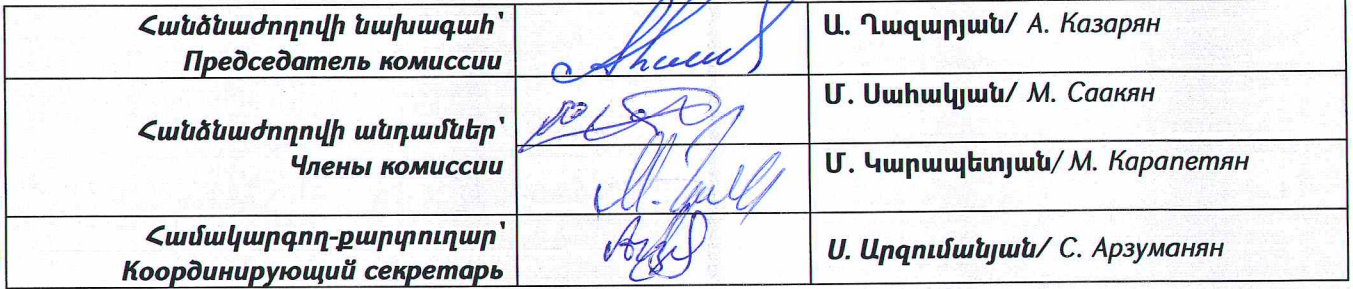 Հանձնաժողովի նախագահ՝
Председатель комиссии
Ա. Ղազարյան/ А. Казарян
Հանձնաժողովի անդամներ՝
Члены комиссии
Մ. Սահակյան/ М. Саакян
Մ. Կարապետյան/ М. Карапетян
Համակարգող-քարտուղար՝
Координирующий секретарь
Ս. Արզումանյան/ С. Арзуманян